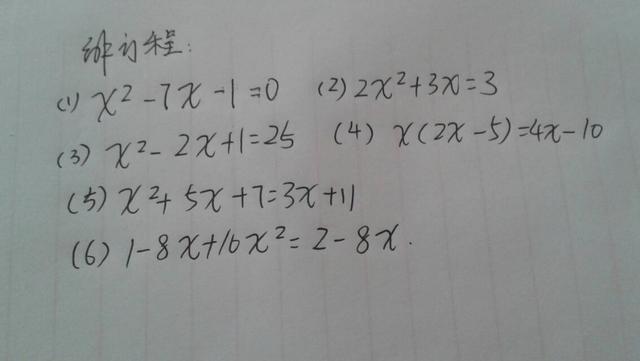 解方程:
(1) x²-7x-1=0 (2) 2x²+3x=3
(3) x²-2x+1=25 (4) x(2x-5)=4x-10
(5) x²+5x+7=3x+11
(6) 1-8x+16x²=2-8x.